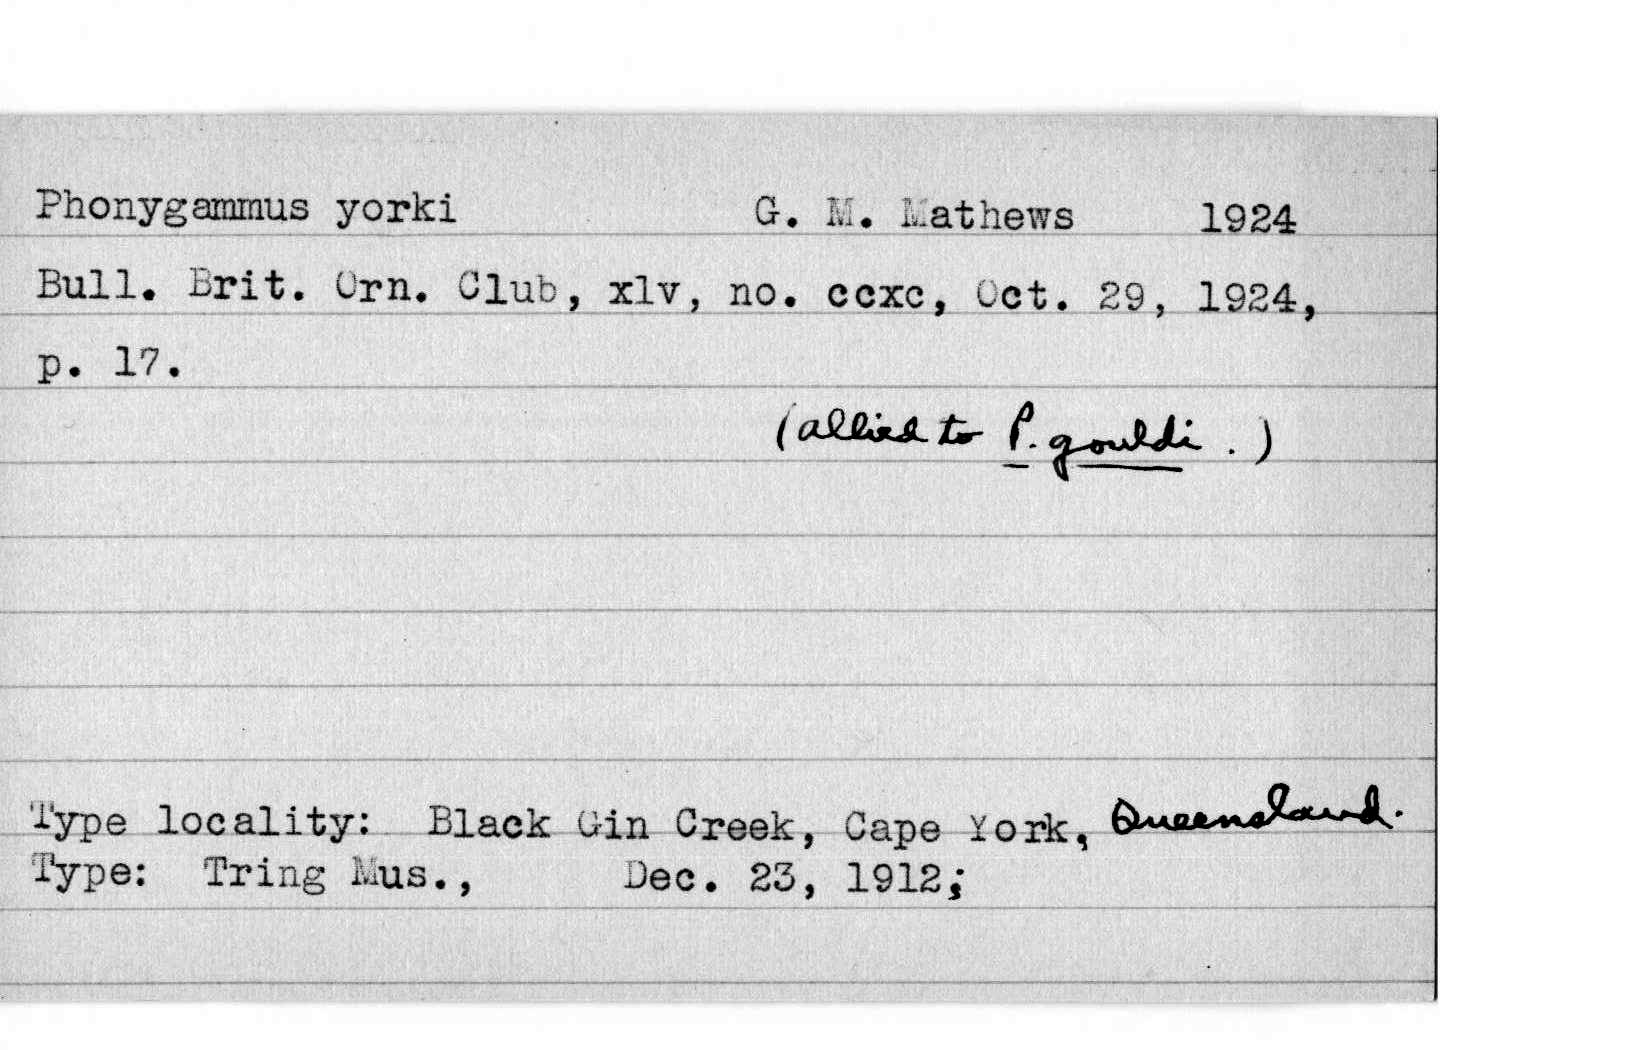 Phonygammus yorki G. M. Mathews 1924
Bull. Brit. Orn. Club, xlv, no. ccxc, Oct. 29, 1924,
p. 17.
(allied to P. gouldi.)
Type locality: Black Gin Creek, Cape York, Queensland.
Type: Tring Mus., Dec. 23, 1912;